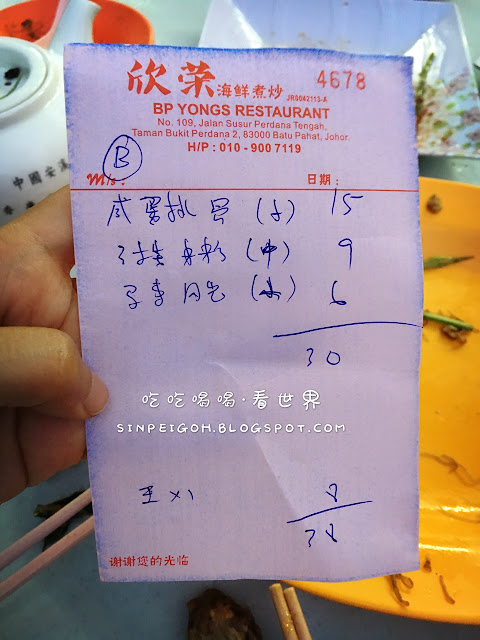 欣荣 海鲜煮炒 4678
JR0042113-A
BP YONGS RESTAURANT
No. 109, Jalan Susur Perdana Tengah,
Taman Bukit Perdana 2, 83000 Batu Pahat, Johor.
H/P : 010 - 900 7119
B
M/s : 日期 :
咸蛋 15
(中) 9
6
30
吃吃喝喝·看世界
SINPEIGOH.BLOGSPOT.COM
8
38
谢谢您的光临
中國